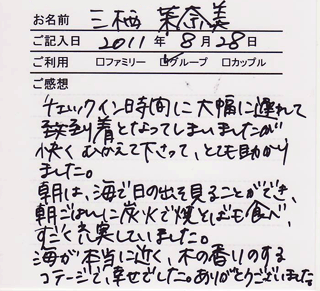 お名前 三栖 茉奈美
ご記入日 2011年 8月 28日
ご利用 □ファミリー ☑グループ □カップル
ご感想
チェックイン時間に大幅に遅れて
到着となってしまいましたが
快くむかえて下さって、とても助かり
ました。
朝は、海で日の出を見ることができ、
朝ごはんに炭火で焼きとばも食べ、
すごく充実していました。
海が本当に近く、木の香りのする
コテージで、幸せでした。ありがとうございました。